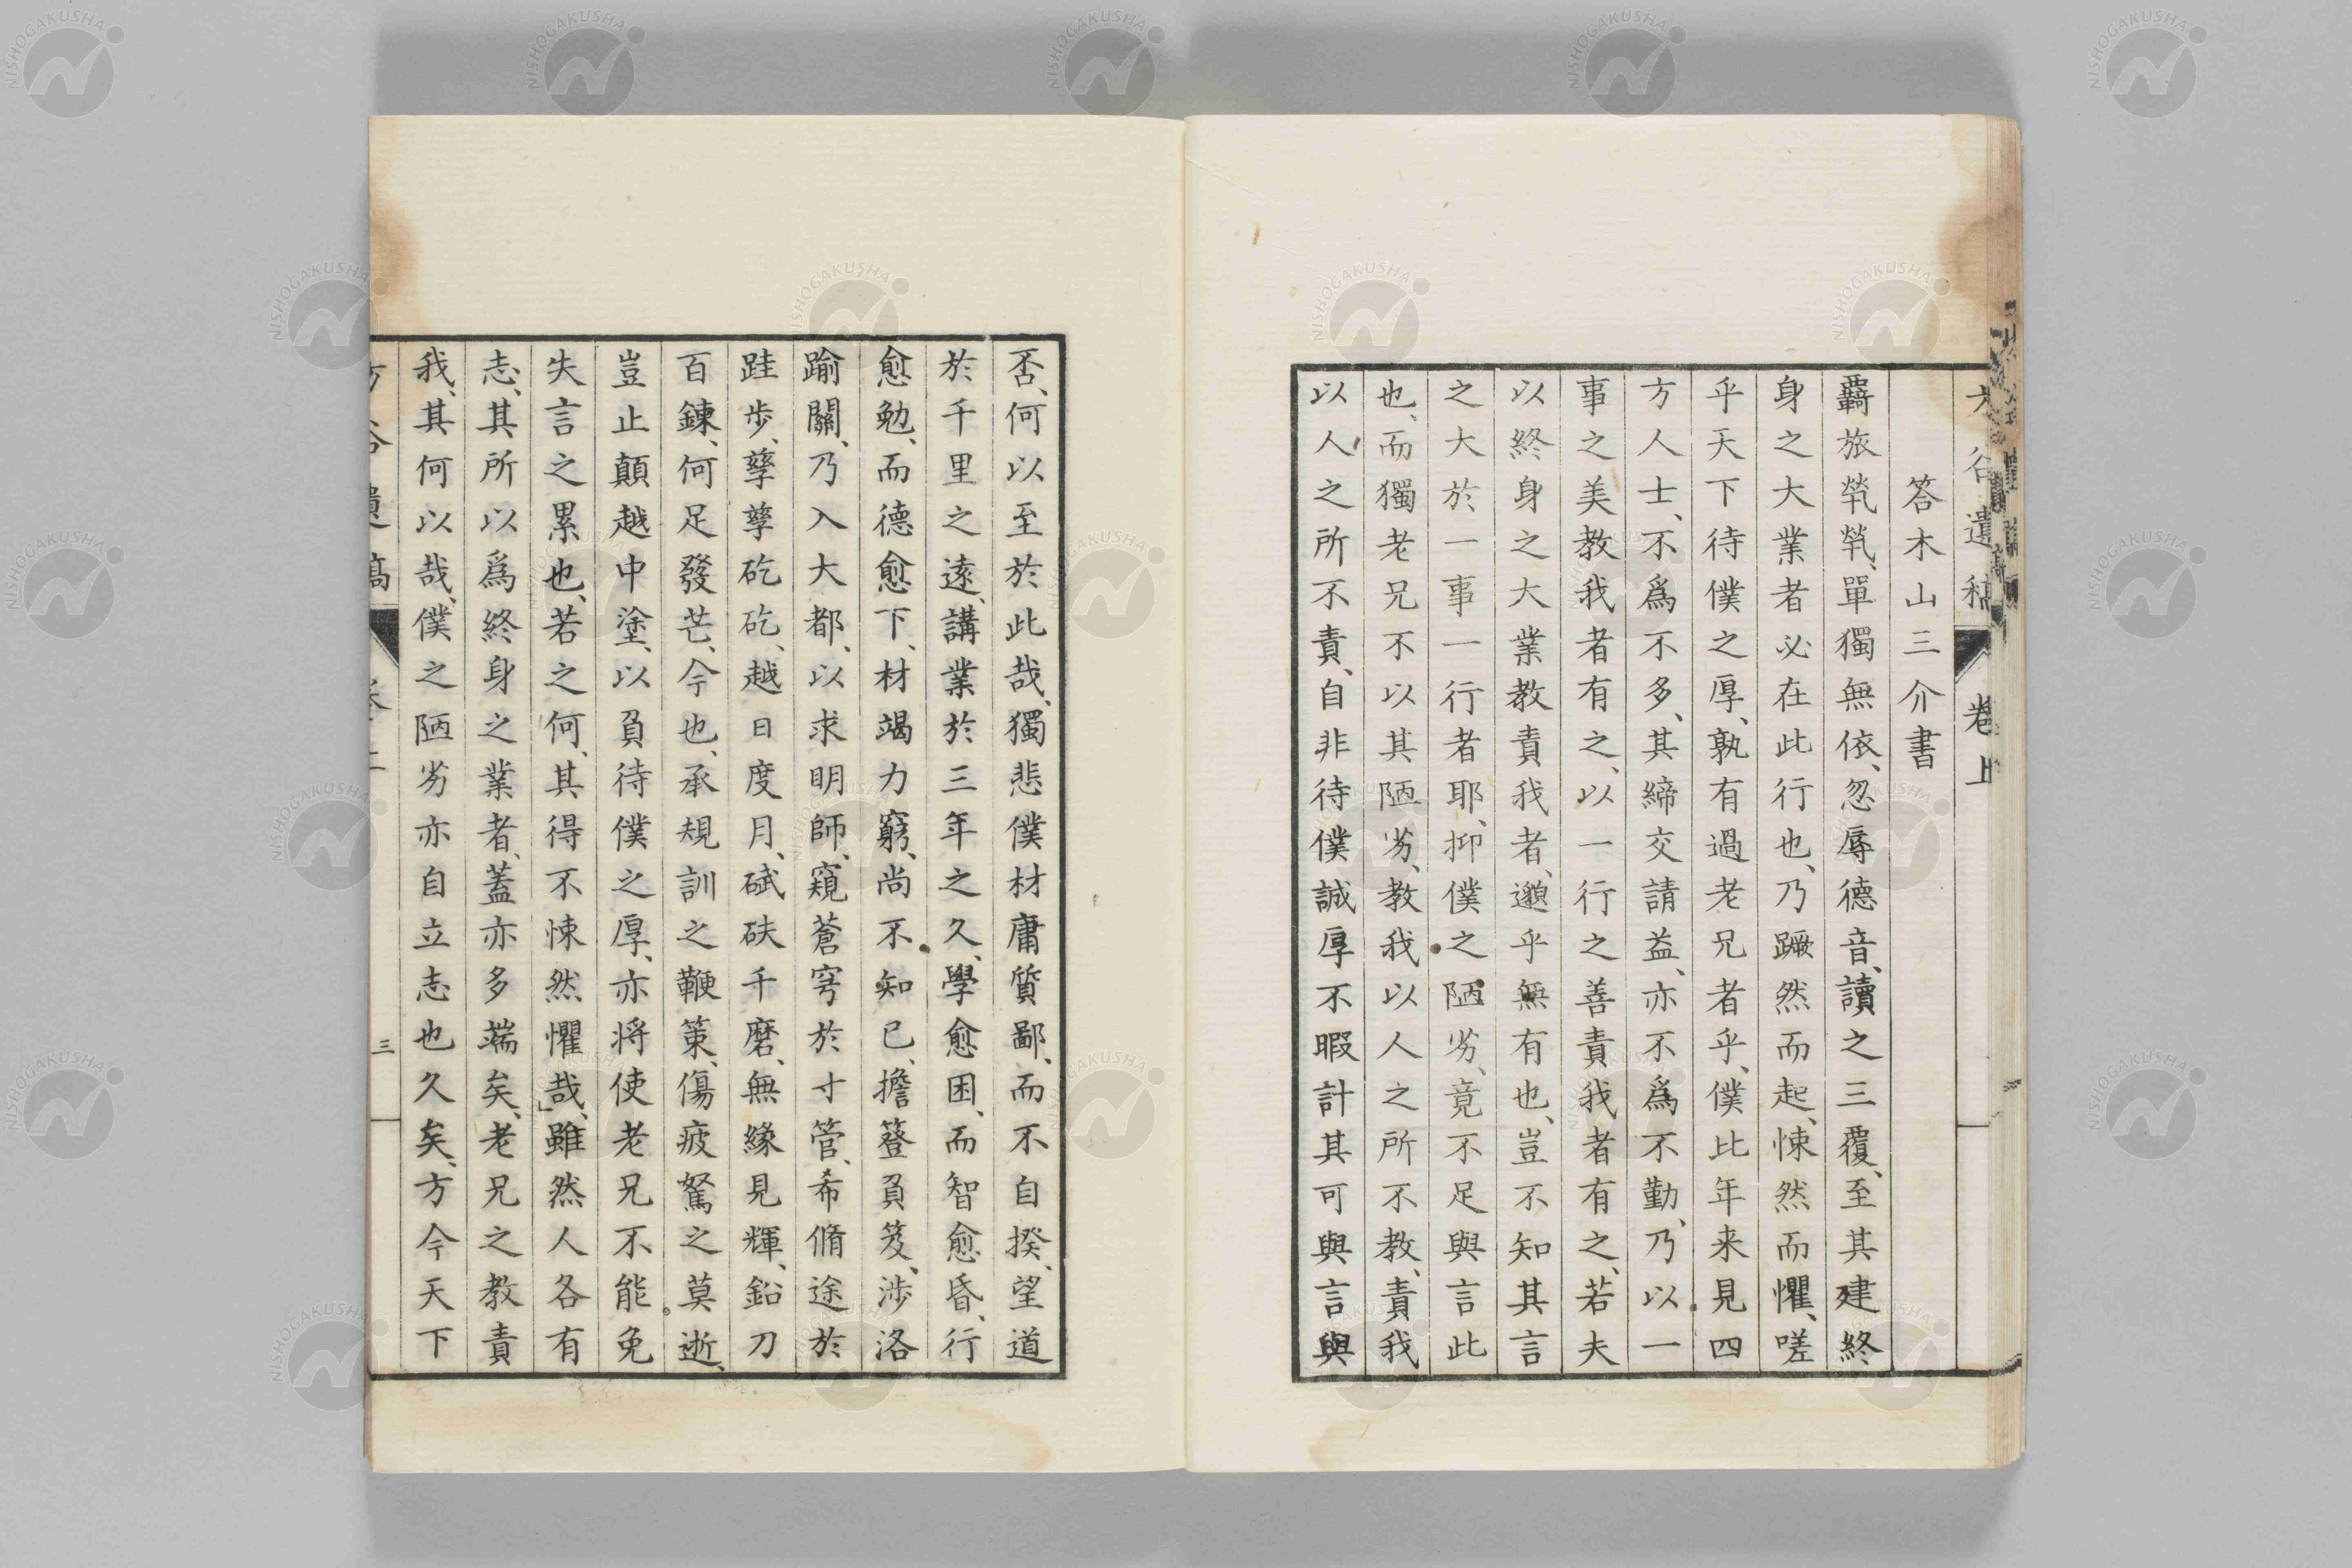 方谷遺稿 卷上
答木山三介書
覉旅煢煢、單獨無依、忽辱德音、讀之三覆、至其建終
身之大業者必在此行也、乃蹶然而起、悚然而懼、嗟
乎天下待僕之厚、孰有過老兄者乎、僕比年来見四
方人士、不爲不多、其締交請益、亦不爲不勤、乃以一
事之美教我者有之、以一行之善責我者有之、若夫
以終身之大業教責我者、邈乎無有也、豈不知其言
之大於一事一行者耶、抑僕之陋劣、竟不足與言此
也、而獨老兄不以其陋劣、教我以人之所不教、責我
以人之所不責、自非待僕誠厚不暇計其可與言與
否、何以至於此哉、獨悲僕材庸質鄙、而不自揆、望道
於千里之遠、講業於三年之久、學愈困、而智愈昏、行
愈勉、而德愈下、材竭力窮、尚不知已、擔簦負笈、涉洛
踰關、乃入大都、以求明師、窺蒼穹於寸管、希脩途於
跬步、孳孳矻矻、越日度月、碔砆千磨、無緣見輝、鉛刀
百鍊、何足發芒、今也、承規訓之鞭策、傷疲駑之莫逝、
豈止顛越中塗、以負待僕之厚、亦将使老兄不能免
失言之累也、若之何、其得不悚然懼哉、」雖然人各有
志、其所以爲終身之業者、蓋亦多端矣、老兄之教責
我、其何以哉、僕之陋劣亦自立志也久矣、方今天下
方谷遺稿 卷上 三
NISHOGAKUSHA